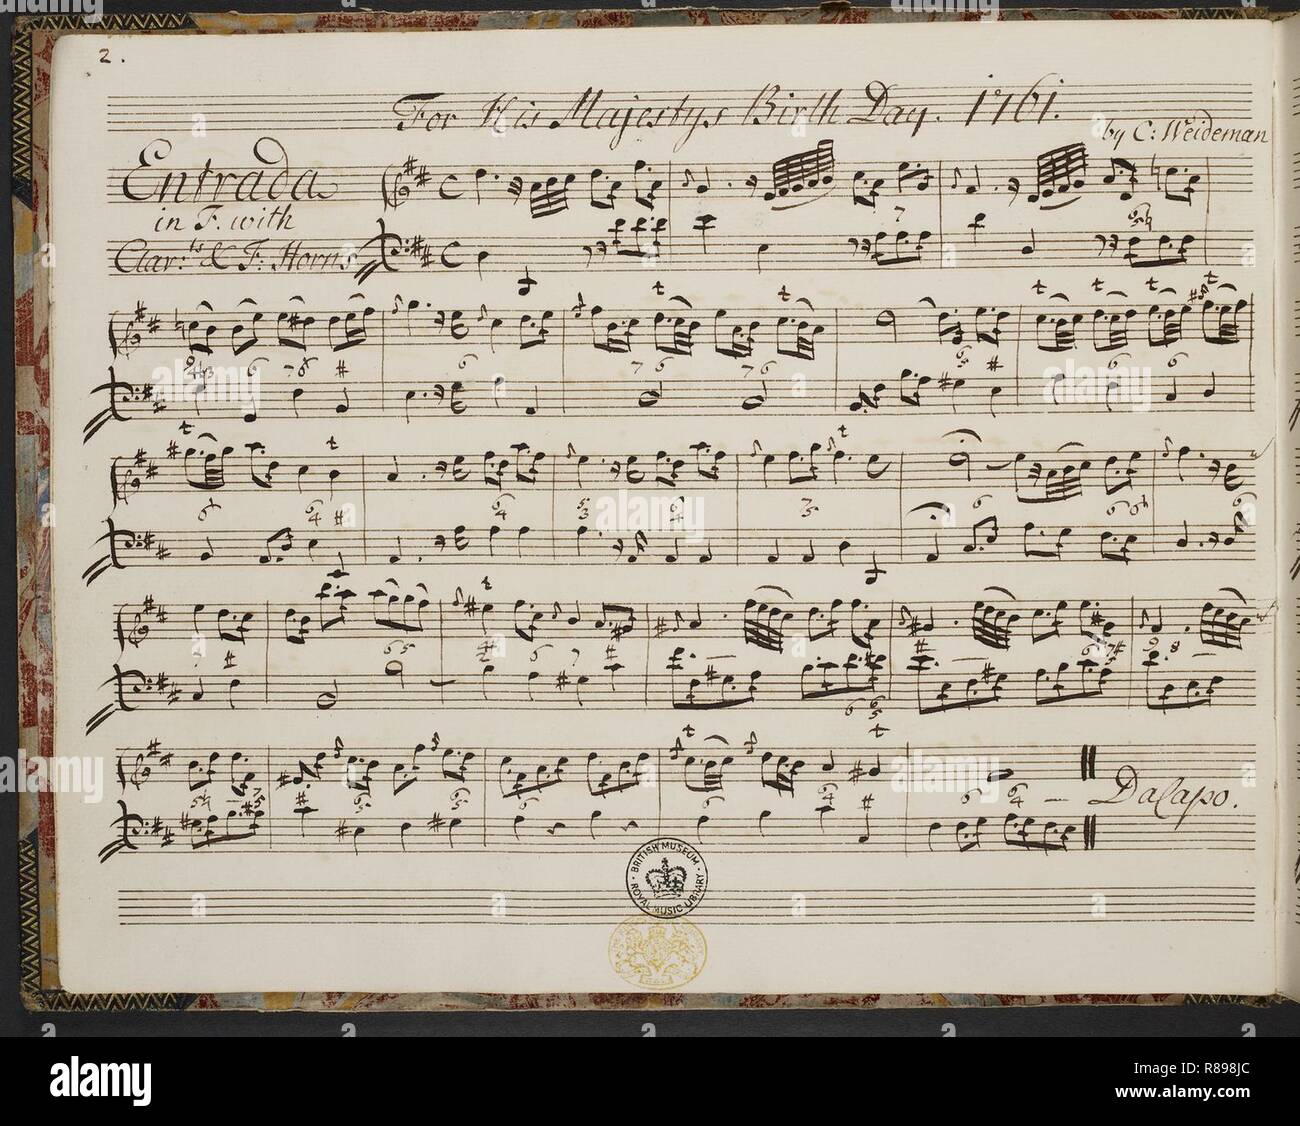 2.
For His Majestys Birth Day. 1761.
by C: Weideman
Entrada
in F. with
Clar:ts & F: Horns
Dalapo.
BRITISH MUSEUM
ROYAL MUSIC LIBRARY
alamy
Image ID: R898JC
www.alamy.com